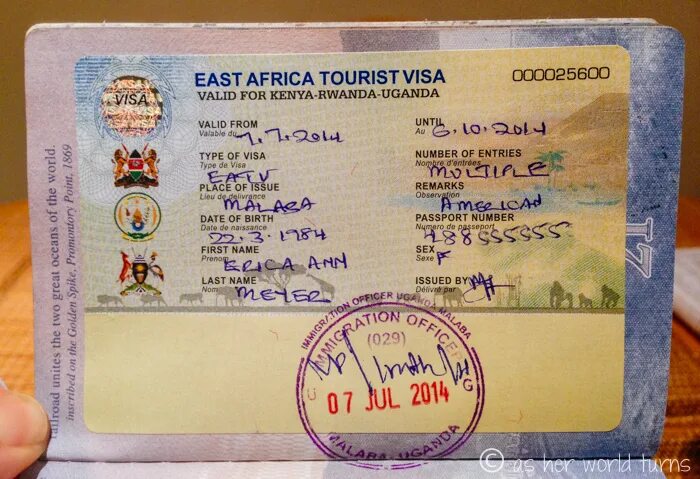 EAST AFRICA TOURIST VISA 000025600
VALID FOR KENYA-RWANDA-UGANDA
VISA
VALID FROM 7.7.2014
Valable du
UNTIL 6.10.2014
Au
TYPE OF VISA
Type de Visa
EATV
NUMBER OF ENTRIES
Nombre d'entrées
MULTIPLE
PLACE OF ISSUE
Lieu de délivrance
MALABA
REMARKS
Observation
AMERICAN
DATE OF BIRTH
Date de naissance
22.3.1984
PASSPORT NUMBER
Numero de passeport
488555555
FIRST NAME
Prenom
ERICA ANN
SEX F
Sexe
LAST NAME
Nom
MEYER
ISSUED BY
Délivré par
IMMIGRATION OFFICER UGANDA MALABA
IMMIGRATION OFFICER
(029)
07 JUL 2014
U G
MALABA-UGANDA
railroad unites the two great oceans of the world.
inscribed on the Golden Spike, Promontory Point, 1869
17
© as her world turns